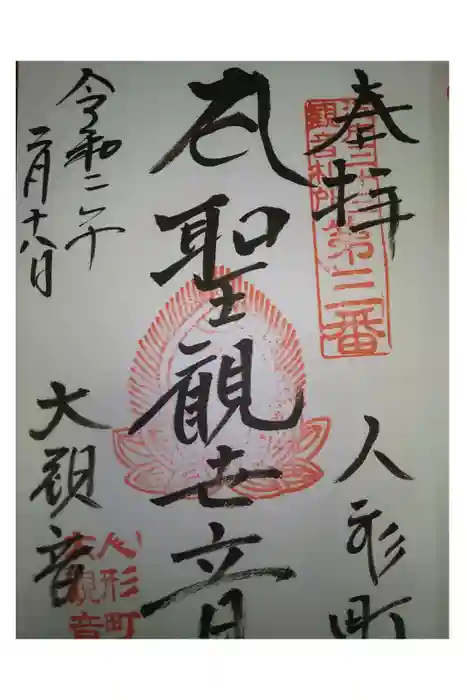 奉拝
人形町
聖観世音
令和二年
二月十八日
大観音
第三番
人形町
大観音